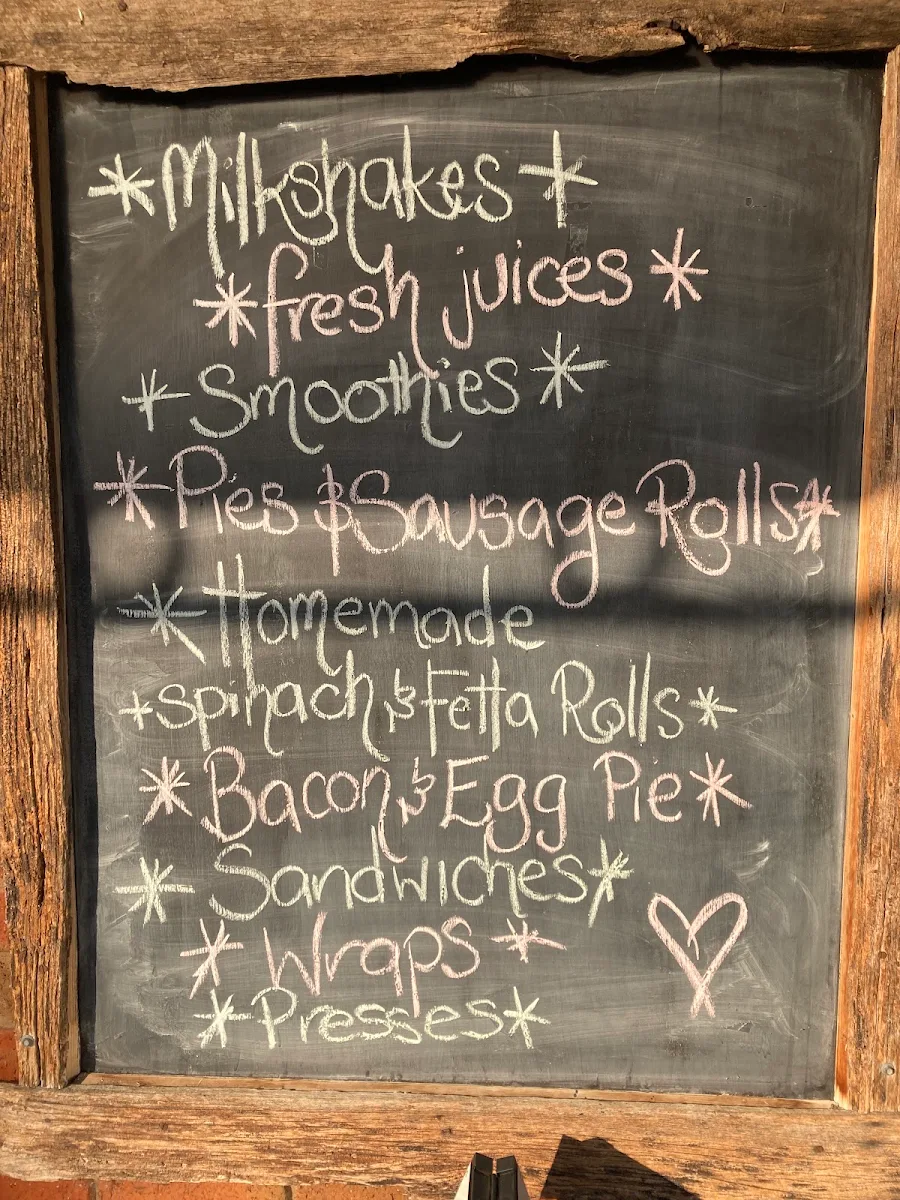 *Milkshakes*
*fresh juices*
*Smoothies*
*Pies & Sausage Rolls*
*Homemade
*spinach & Fetta Rolls*
*Bacon & Egg Pie*
*Sandwiches*
*Wraps*
*Presses*